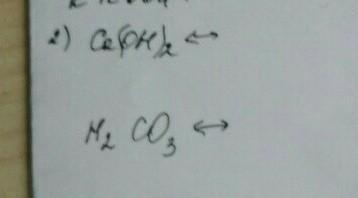 2) Ca(OH)₂ ↔
H₂ CO₃ ↔